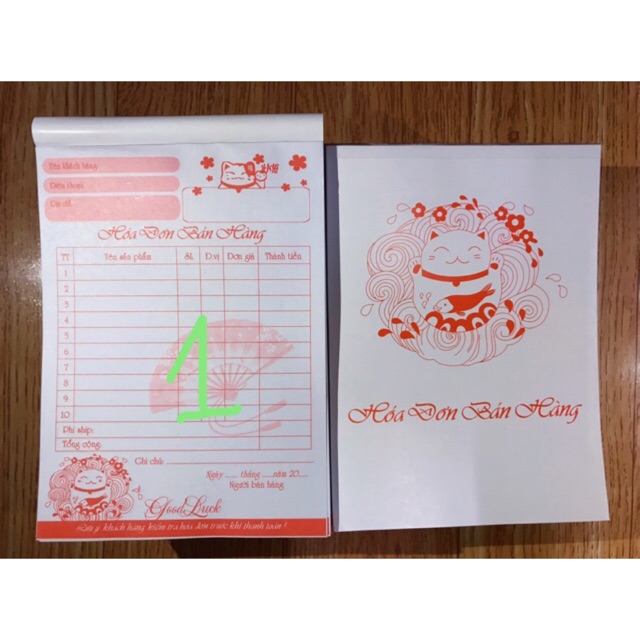 Tên khách hàng:
Điện thoại:
Địa chỉ:
Hóa Đơn Bán Hàng
TT Tên sản phẩm SL Đ.vị Đơn giá Thành tiền
1
2
3
4
5
6
7
8
9
10
Phí ship:
Tổng cộng:
Ghi chú:
Ngày ...... tháng ......năm 20.....
Người bán hàng
Good Luck
Lưu ý khách hàng kiểm tra hóa đơn trước khi thanh toán !
1
Hóa Đơn Bán Hàng